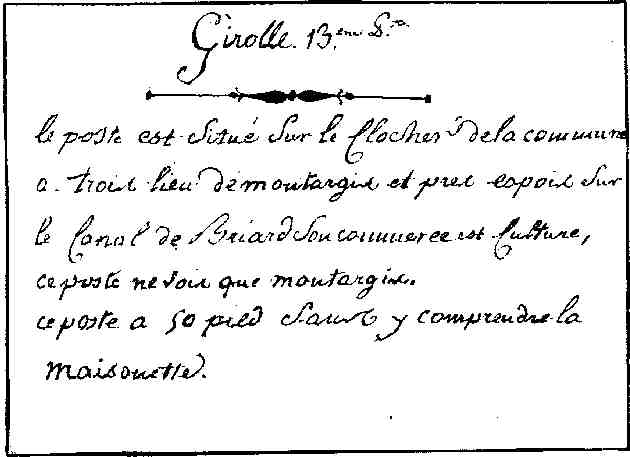 Girolle. 13.ème D.on
le poste est situé sur le Clocher de la commune
a. trois lieu de montargis et pres espois sur
le Canal de Briard Son commerce est Culture,
ce poste ne vois que montargis.
ce poste a 50 pied Sans y comprendre la
maisonette.